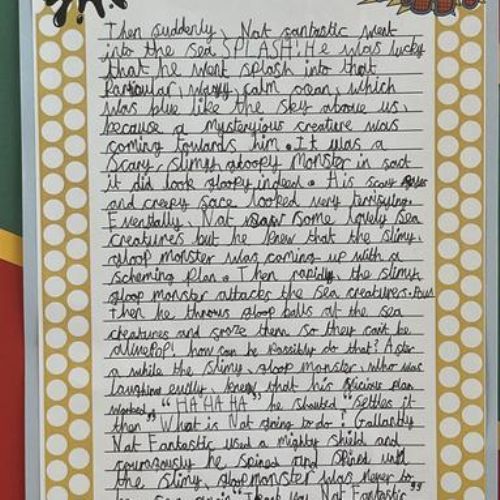 Then suddenly, Nat santastic went
into the sea SPLASH! He was lucky
that he went splash into that
Particular, wavy, calm ocean, which
was blue like the sky above us,
because a mysteryious creature was
coming towards him. It was a
Scary, slimy, gloopy Monster in sact
it did look gloopy indeed. His scary
and creepy sace looked very terrisying.
Eventally, Nat saw some lovely sea
creatures but he knew that the slimy,
gloop monster was coming up with a
scheming plan. Then rapidly, the slimy
gloop monster attacks the sea creatures. But
then he throws gloop balls at the sea
creatures and sroze them so they can't be
alive POP! how can he possibly do that? Aster
a while the slimy, gloop monster, who was
laughing evilly, knew that his vicious plan
worked, "HA HA HA" he shouted "Settles it
then" What is Nat going to do? Gallantly
Nat Fantastic used a mighty shield and
courageously he spined and spined until
the slimy, gloop monster was never to
be seen again "Thank you Nat Fantastic"